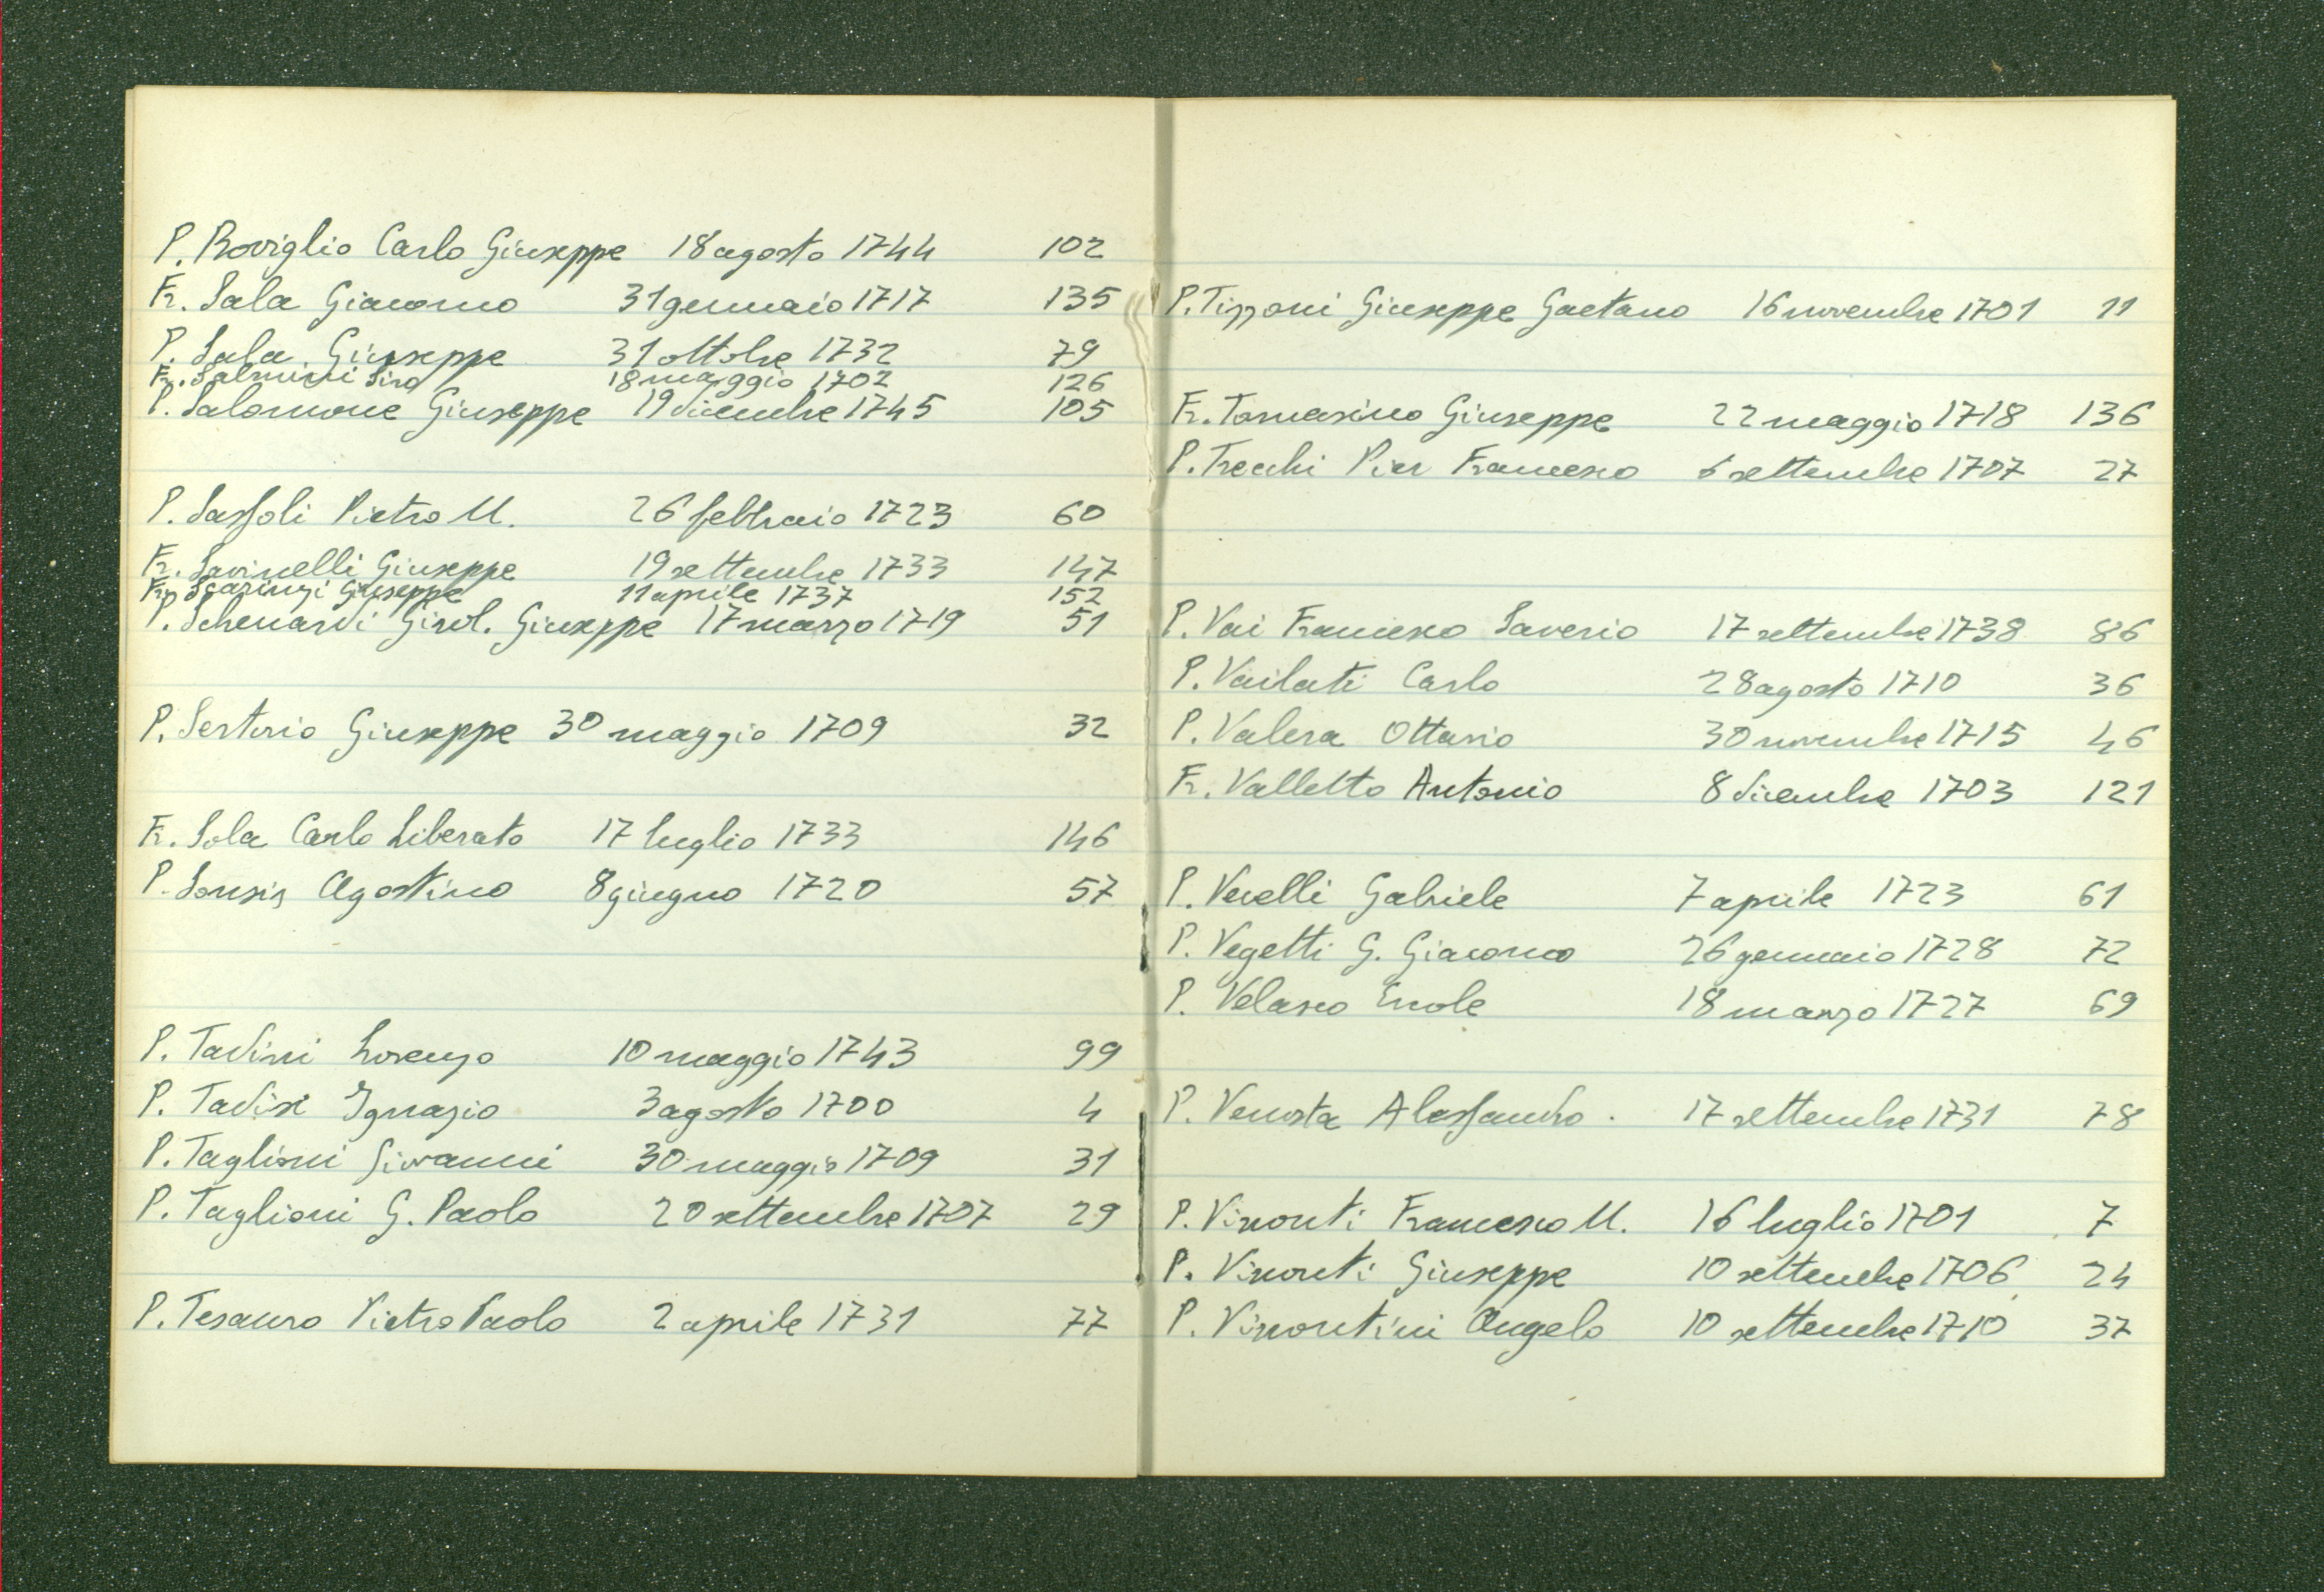 P. Roviglio Carlo Giuseppe 18 agosto 1744 102
Fr. Sala Giacomo 31 gennaio 1717 135
P. Sala Giuseppe 31 ottobre 1732 79
Fr. Salmini Siro 18 maggio 1702 126
P. Salomone Giuseppe 19 dicembre 1745 105
P. Sassoli Pietro M. 26 febbraio 1723 60
Fr. Savinelli Giuseppe 19 settembre 1733 147
Fr. Scarinzi Giuseppe 11 aprile 1737 152
P. Schenardi Girol. Giuseppe 17 marzo 1719 51
P. Sertorio Giuseppe 30 maggio 1709 32
Fr. Sola Carlo Liberato 17 luglio 1733 146
P. Sonsis Agostino 8 giugno 1720 57
P. Tadini Lorenzo 10 maggio 1743 99
P. Tadisi Ignazio 3 agosto 1700 4
P. Taglioni Giovanni 30 maggio 1709 31
P. Taglioni G. Paolo 20 settembre 1707 29
P. Tesauro Pietro Paolo 2 aprile 1731 77
P. Tizzoni Giuseppe Gaetano 16 novembre 1701 11
Fr. Tomasino Giuseppe 22 maggio 1718 136
P. Trecchi Pier Francesco 6 settembre 1707 27
P. Vai Francesco Saverio 17 settembre 1738 86
P. Vailati Carlo 28 agosto 1710 36
P. Valera Ottavio 30 novembre 1715 46
Fr. Valletto Antonio 8 dicembre 1703 121
P. Vecelli Gabriele 7 aprile 1723 61
P. Vegetti G. Giacomo 26 gennaio 1728 72
P. Velasco Ercole 18 marzo 1727 69
P. Venosta Alessandro. 17 settembre 1731 78
P. Visconti Francesco M. 16 luglio 1701 7
P. Visconti Giuseppe 10 settembre 1706 24
P. Viscontini Angelo 10 settembre 1710 37